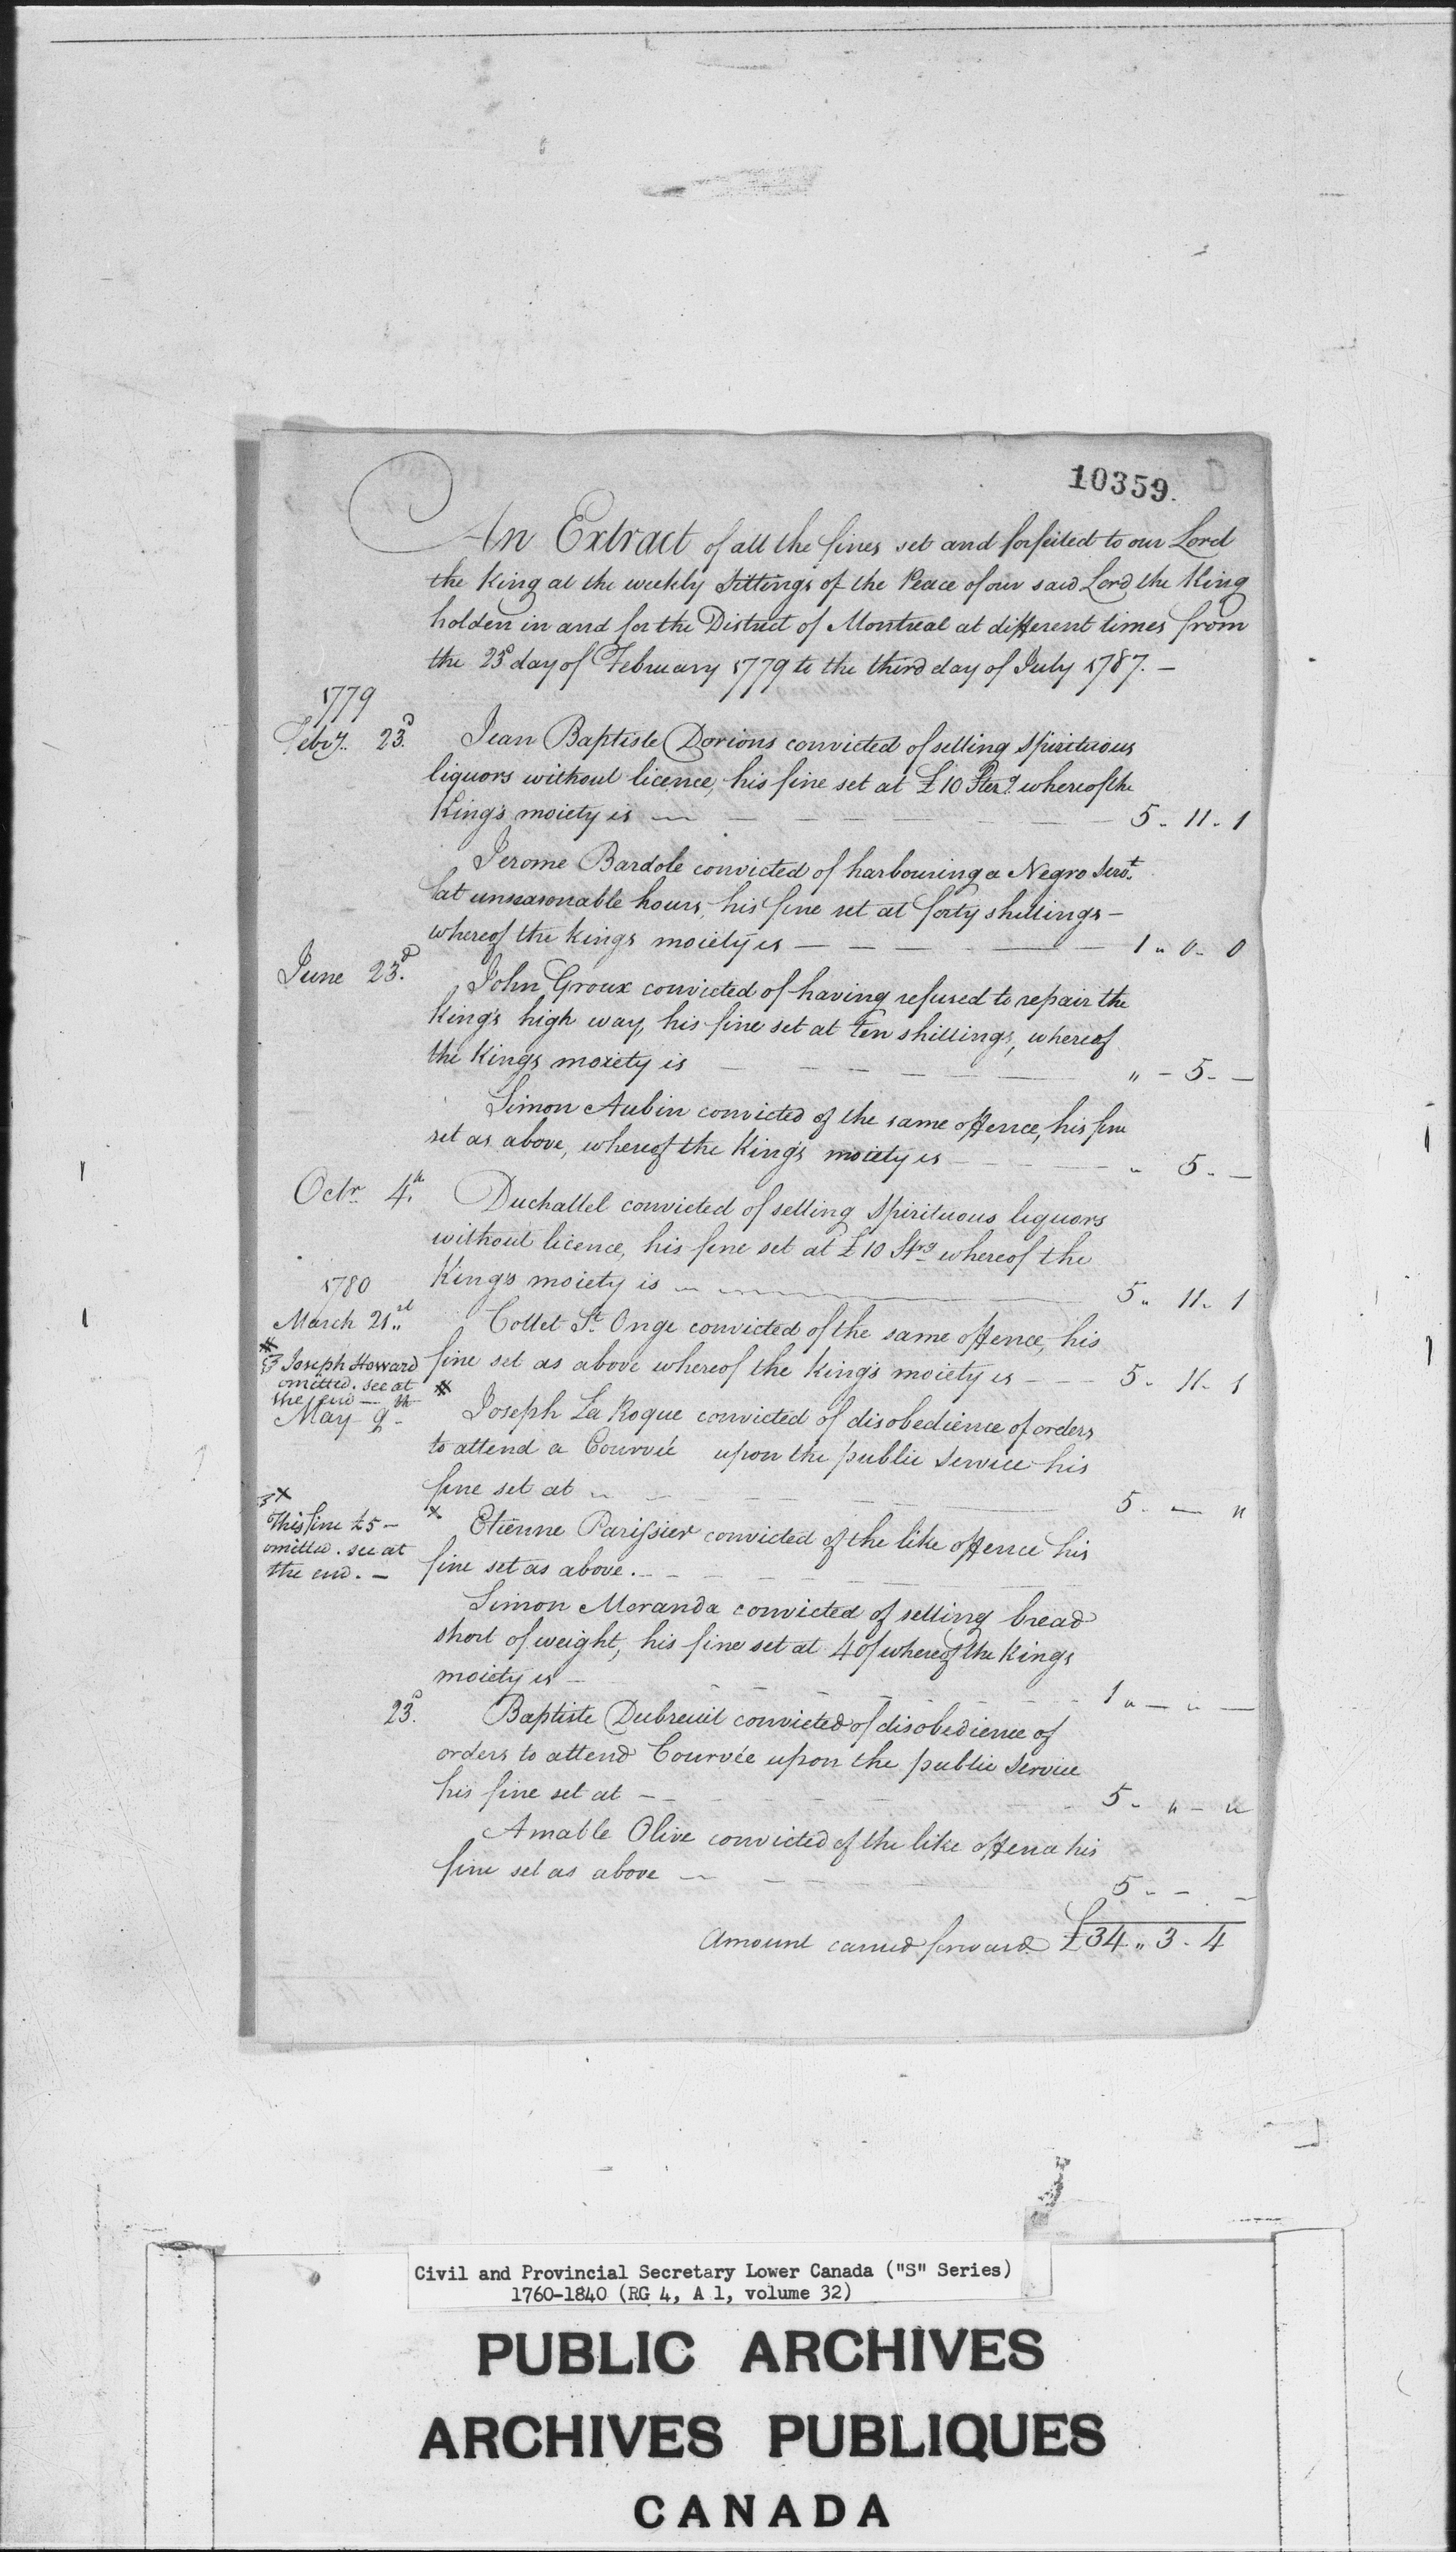 10359.
An Extract of all the fines set and forfeited to our Lord
the King at the weekly Sittings of the Peace of our said Lord the King
holden in and for the District of Montreal at different times from
the 23d day of February 1779 to the third day of July 1787. —
1779
Febry. 23d. Jean Baptiste Dorions convicted of selling Spirituous
liquors without licence, his fine set at £10 Sterg. whereof the
King's moiety is — 5 - 11 - 1
Jerome Bardole convicted of harbouring a Negro Servt.
at unseasonable hours, his fine set at forty shillings —
whereof the Kings moiety is — 1 " 0 - 0
June 23d. John Groux convicted of having refused to repair the
King's high way, his fine set at ten shillings, whereof
the Kings moiety is — " - 5 - —
Simon Aubin convicted of the same offence, his fine
set as above, whereof the King's moiety is — " 5 - —
Octr. 4th. Duchattel convicted of selling Spirituous liquors
without licence, his fine set at £10 Strg whereof the
King's moiety is — 5 " 11 - 1
1780
March 21st. Collet St. Onge convicted of the same offence, his
fine set as above whereof the King's moiety is — 5 - 11 - 1
# Joseph Howard
omitted. see at
the end —
May 9th # Joseph La Roque convicted of disobedience of orders
to attend a Courvée upon the public Service his
fine set at — 5 - — "
x This fine £5 —
omitted. see at
the end. —
x Etienne Parissier convicted of the like offence his
fine set as above. —
Simon Moranda convicted of selling bread
short of weight, his fine set at 40/ whereof the Kings
moiety is — 1 " — " —
23d. Baptiste Dubreuil convicted of disobedience of
orders to attend Courvée upon the public Service
his fine set at — 5 - " - "
Amable Olive convicted of the like offence his
fine set as above — 5 - - -
Amount carried forward £34 " 3 - 4
Civil and Provincial Secretary Lower Canada ("S" Series)
1760-1840 (RG 4, A 1, volume 32)
PUBLIC ARCHIVES
ARCHIVES PUBLIQUES
CANADA